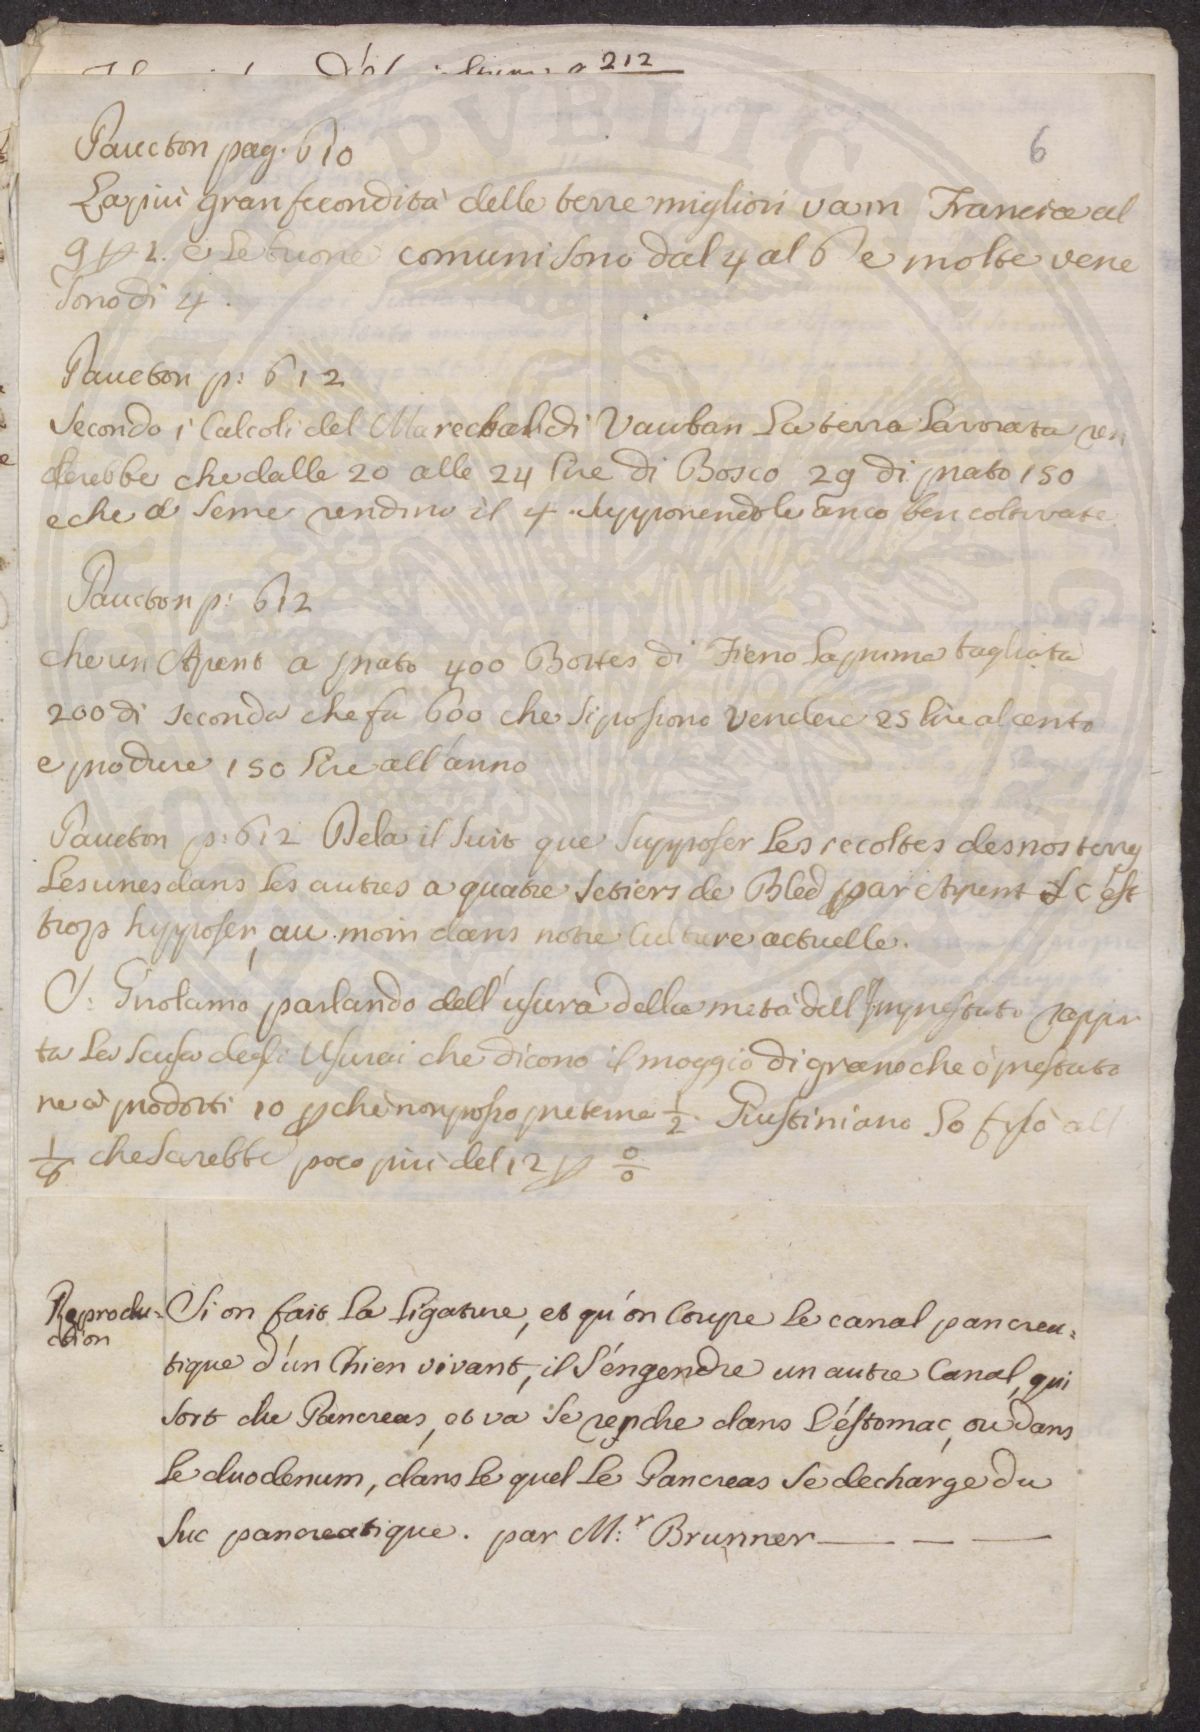 212
6
Paucton pag. 610
La più gran fecondità delle terre migliori va in Francia al
9 p 1. e le buone comuni sono dal 4 al 6 e molte vene
sono di 4.
Paucton p: 612
Secondo i Calcoli del Marechal di Vauban La terra Lavorata ren
derebbe che dalle 20 alle 24 lire di Bosco 29 di prato 150
e che a seme rendino il 4. supponendole anco ben coltivate
Paucton p: 612
che un Arpent a prato 400 Bottes di Fieno la prima tagliata
200 di seconda che fa 600 che si possono vendere 25 lire al cento
e produre 150 lire all'anno
Paucton p: 612 Dela il suit que supposer Les recoltes des nos terres
Les unes dans les autres a quatre setiers de Bled par Arpent c'est
trop supposer, au moin dans notre culture actuelle.
S: Girolamo parlando dell'usura della metà dell'Imprestato rappor
ta La scusa degli Usurai che dicono il moggio di grano che ò prestato
ne à prodotti 10 pchè non posso preterne 1/2. Giustiniano Lo fissò all
1/8 che sarebbe poco più del 12 p 0/0
Reprodu=
ction
Si on fait la ligature, et qu'on coupe le canal pancrea=
tique d'un Chien vivant, il s'éngendre un autre Canal, qui
sort du Pancreas, et va se rendre dans L'éstomac, ou dans
Le duodenum, dans le quel Le Pancreas se decharge du
suc pancreatique. par M:r Brunner — — —